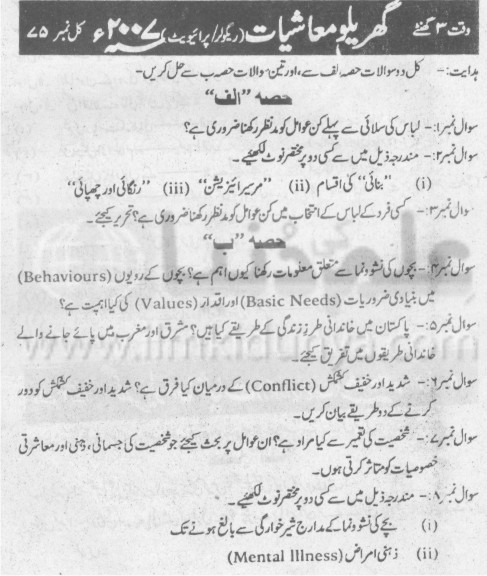 وقت ۳ گھنٹے گھریلو معاشیات (ریگولر/پرائیویٹ) ۲۰۰۷ء کل نمبر ۷۵
ہدایت:- کل دو سوالات حصہ الف سے، اور تین سوالات حصہ ب سے حل کریں۔
حصہ "الف"
سوال نمبر۱:- لباس کی سلائی سے پہلے کن عوامل کو مدنظر رکھنا ضروری ہے؟
سوال نمبر۲:- مندرجہ ذیل میں سے کسی دو پر مختصر نوٹ لکھئیے۔
(i) "بنائی" کی اقسام (ii) "مرسیرائیزیشن" (iii) "رنگائی اور چھپائی"
سوال نمبر۳:- کسی فرد کے لباس کے انتخاب میں کن عوامل کو مدنظر رکھنا ضروری ہے؟ تحریر کیجئے۔
حصہ "ب"
سوال نمبر۴:- بچوں کی نشوونما سے متعلق معلومات رکھنا کیوں اہم ہے؟ بچوں کے رویوں (Behaviours)
میں بنیادی ضروریات (Basic Needs) اور اقدار (Values) کی کیا اہمیت ہے؟
سوال نمبر۵:- پاکستان میں خاندانی طرز زندگی کے طریقے کیا ہیں؟ مشرق اور مغرب میں پائے جانے والے
خاندانی طریقوں میں تفریق کیجئے۔
سوال نمبر۶:- شدید اور خفیف کشمکش (Conflict) کے درمیان کیا فرق ہے؟ شدید اور خفیف کشمکش کو دور
کرنے کے دو طریقے بیان کریں۔
سوال نمبر۷:- شخصیت کی تعمیر سے کیا مراد ہے؟ ان عوامل پر بحث کیجئے جو شخصیت کی جسمانی، ذہنی اور معاشرتی
خصوصیات کو متاثر کرتی ہوں۔
سوال نمبر۸:- مندرجہ ذیل میں سے کسی دو پر مختصر نوٹ لکھئیے۔
(i) بچے کی نشوونما کے مدارج شیر خوارگی سے بالغ ہونے تک
(ii) ذہنی امراض (Mental Illness)
علم کی دنیا
www.ilmkidunya.com